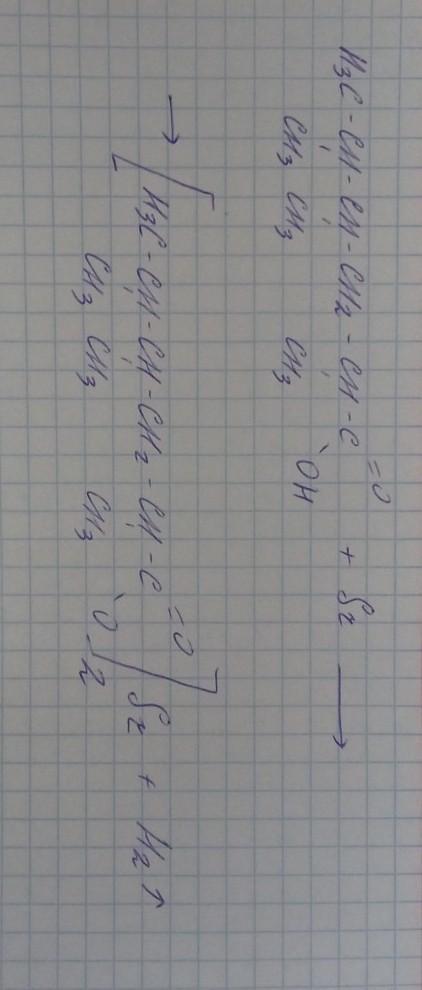 H₃C - CH - CH - CH₂ - CH - C =O + Sr →
CH₃ CH₃ CH₃ OH
→ [ H₃C - CH - CH - CH₂ - CH - C =O ]₂ Sr + H₂↑
CH₃ CH₃ CH₃ O